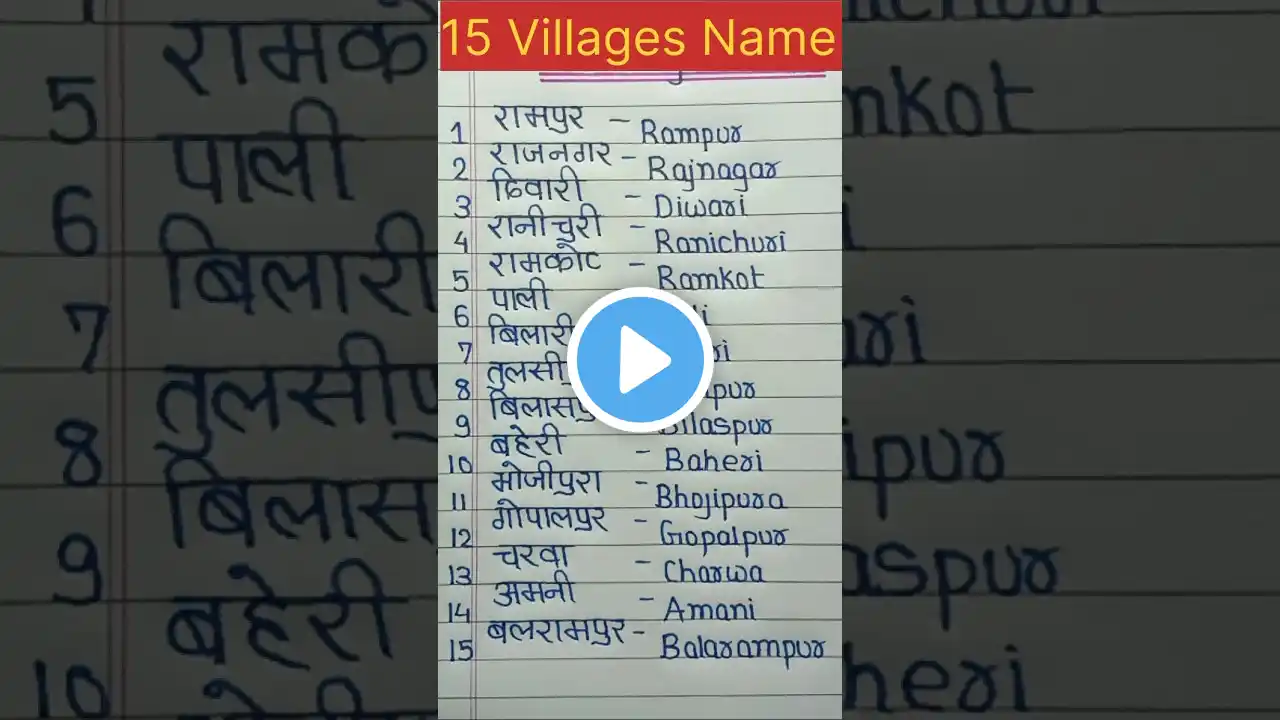 15 Villages Name
1 रामपुर – Rampur
2 राजनगर – Rajnagar
3 दिवारी – Diwari
4 रानीचुरी – Ranichuri
5 रामकोट – Ramkot
6 पाली
7 बिलारी
8 तुलसीपु
9 बिलासपु Bilaspur
10 बहेरी – Baheri
11 भोजीपुरा – Bhojipura
12 गोपालपुर – Gopalpur
13 चरवा – Charwa
14 अमनी – Amani
15 बलरामपुर – Balarampur